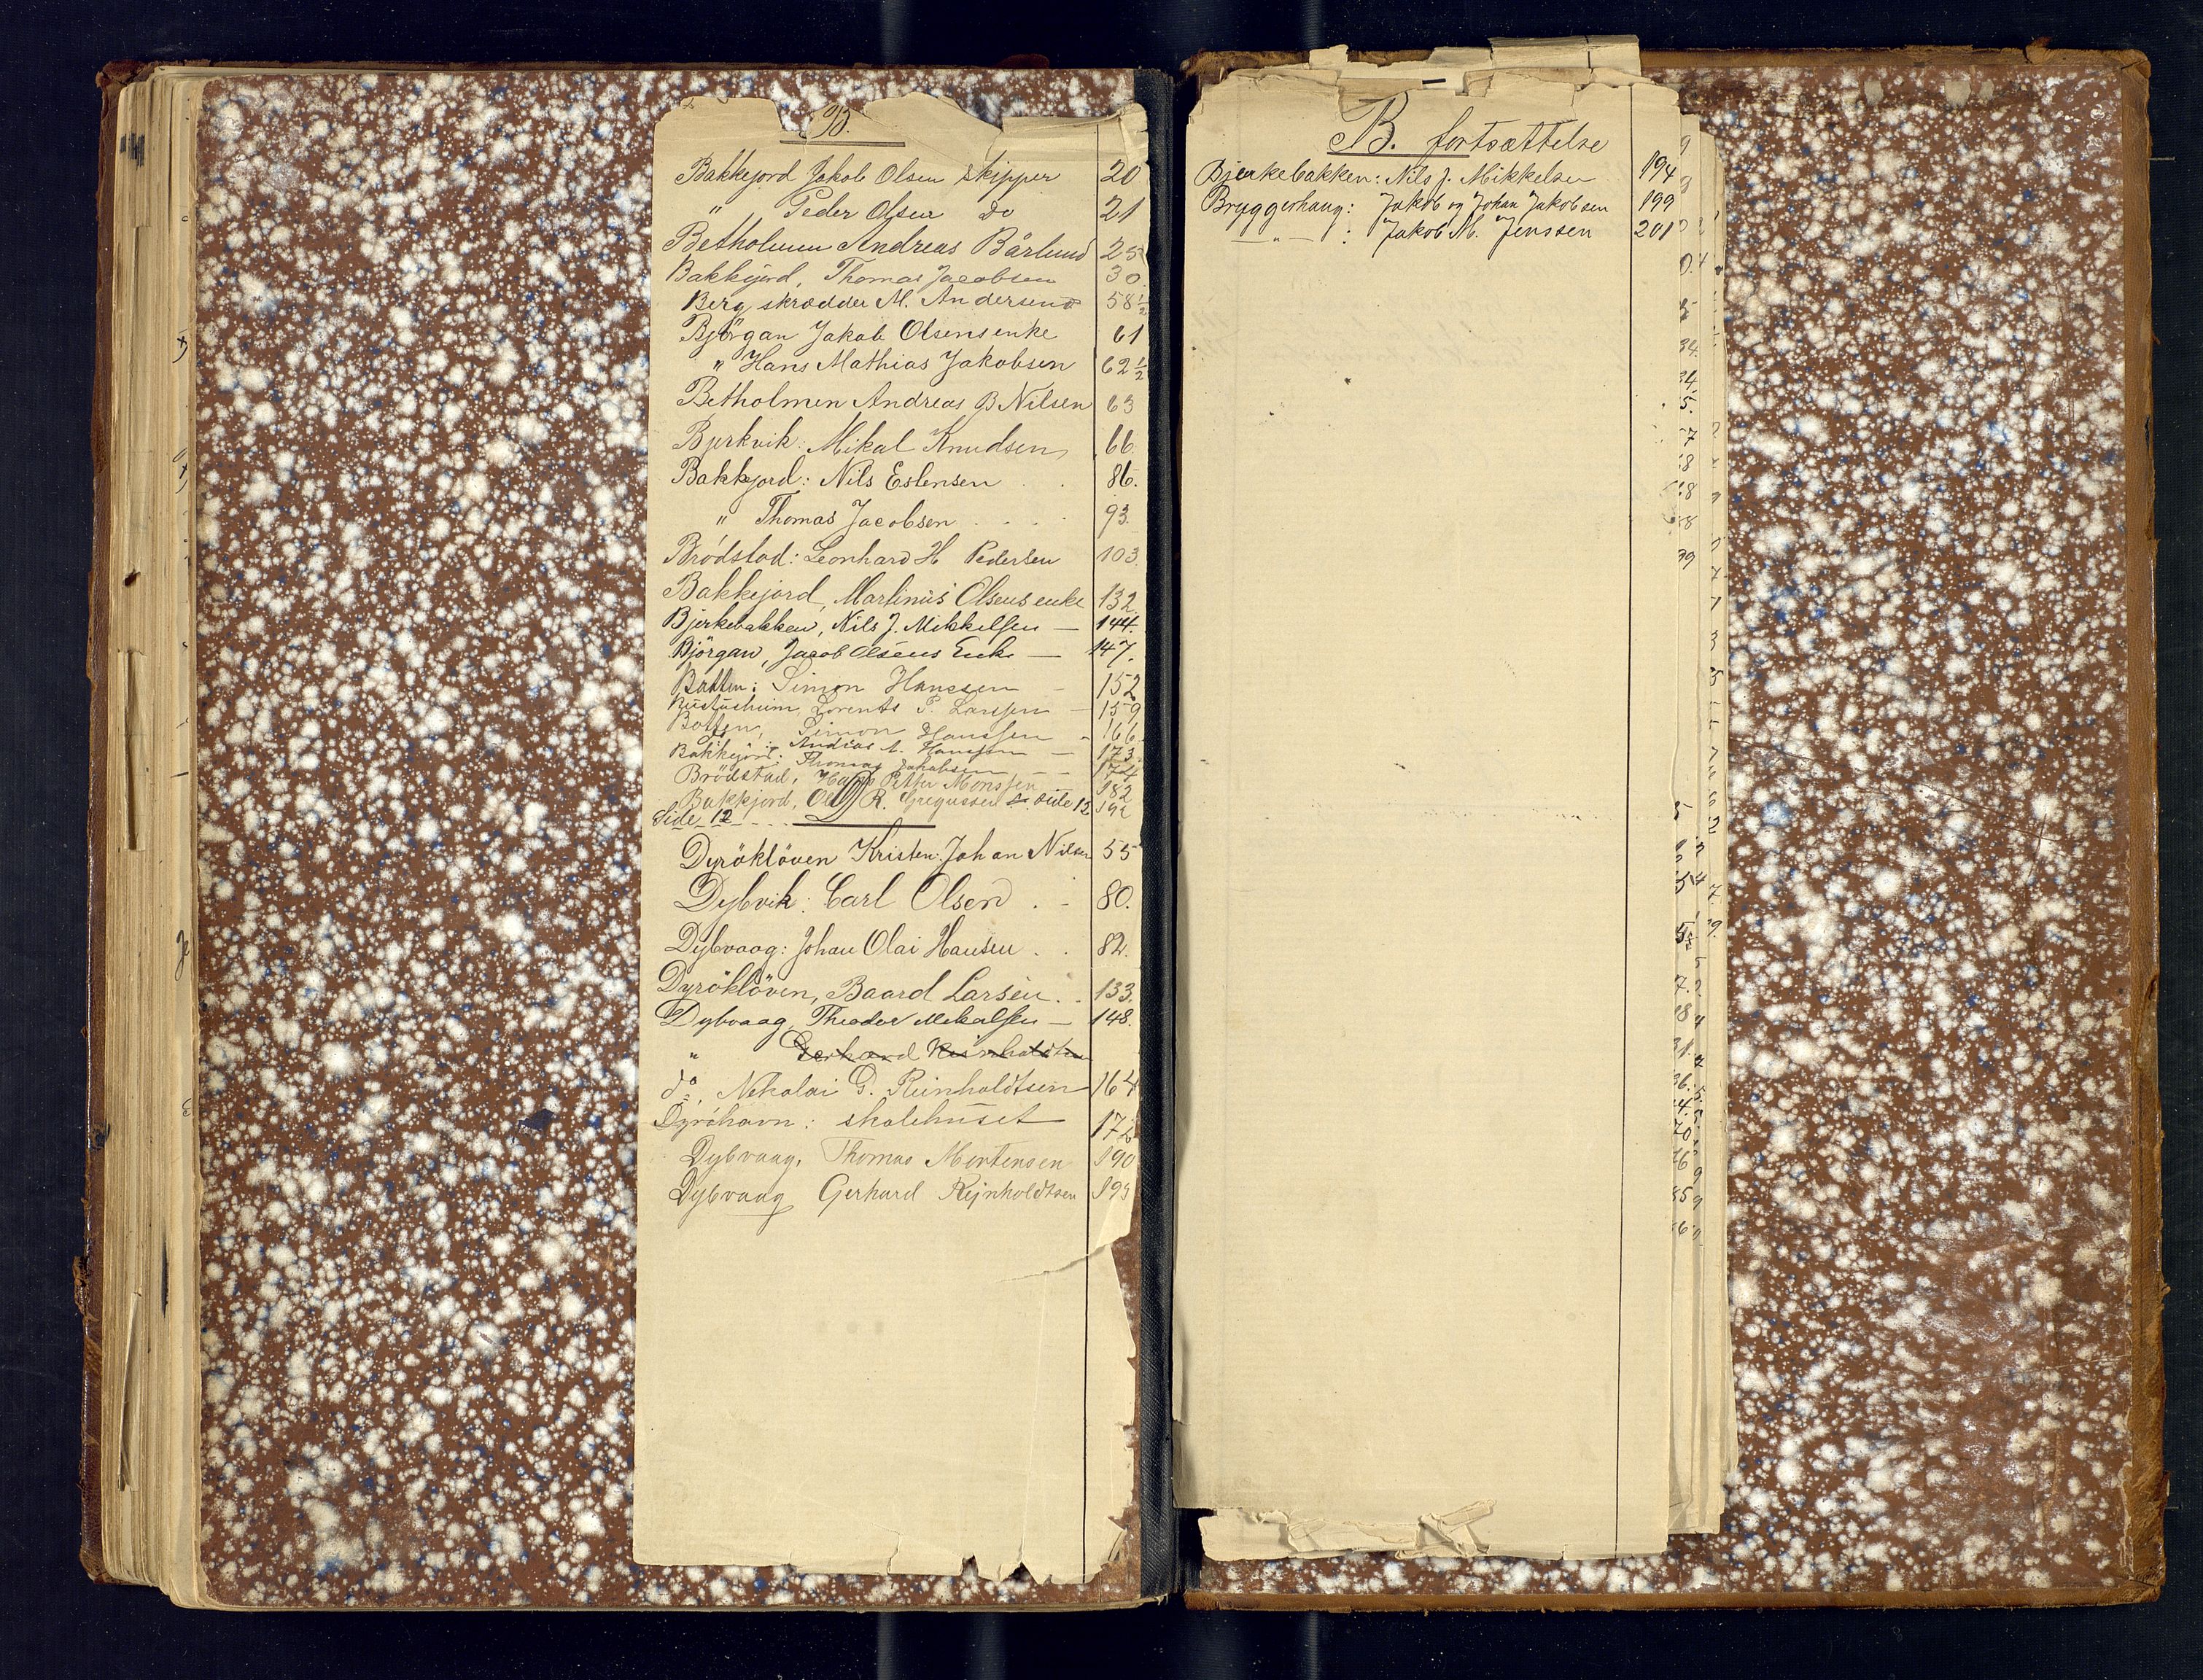 B.
Bakkejord Jakob Olsen Skipper 20
" Peder Olsen Do 21
Betholmen Andreas Bårlund 25
Bakkejord, Thomas Jacobsen 30.
Berg skrædder M. Andersen 58½
Björgan Jakob Olsens enke 61
" Hans Mathias Jakobsen 62½
Betholmen Andreas B Nilsen 63
Bjerkvik: Mikal Knudsen, 66.
Bakkjord: Nils Estensen . . 86.
" Thomas Jacobsen . . . . 93.
Brödstad: Leonhard H Pedersen 103.
Bakkejord, Martinus Olsens enke 132.
Bjerkebakken, Nils J. Mikkelsen — 144.
Björgan, Jacob Olsens Enke — 147.
Batten: Simon Hanssen - 152
Lorents P. Larssen - 159
Botten, Simon Hanssen - 166
Bakkejord: Andreas A. Hanssen — 173.
Thomas Jakobsen - - 174
Brödstad, Hans Petter Monssen 182
Bakkjord, R. Gregussen se side 12 192
Side 12 - - - .
D
Dyröklöven Kristen Johan Nilsen 55
Dybvik: Carl Olsen . - 80.
Dybvaag: Johan Olai Hansen . . 82.
Dyröklöven, Baard Larsen . . 133.
Dybvaag, Theodor Mikalsen — 148.
" Gerhard Reinholdtsen
do, Nekolai G. Reinholdtsen 164
Dyröhavn: skolehuset 172
Dybvaag, Thomas Mortensen 190
Dybvaag Gerhard Reinholdtsen 193
B. fortsættelse
Bjerkebakken: Nils J. Mikkelsen 194
Bryggerhaug: Jakob og Johan Jakobsen 199
— " — : Jakob M. Jenssen 201